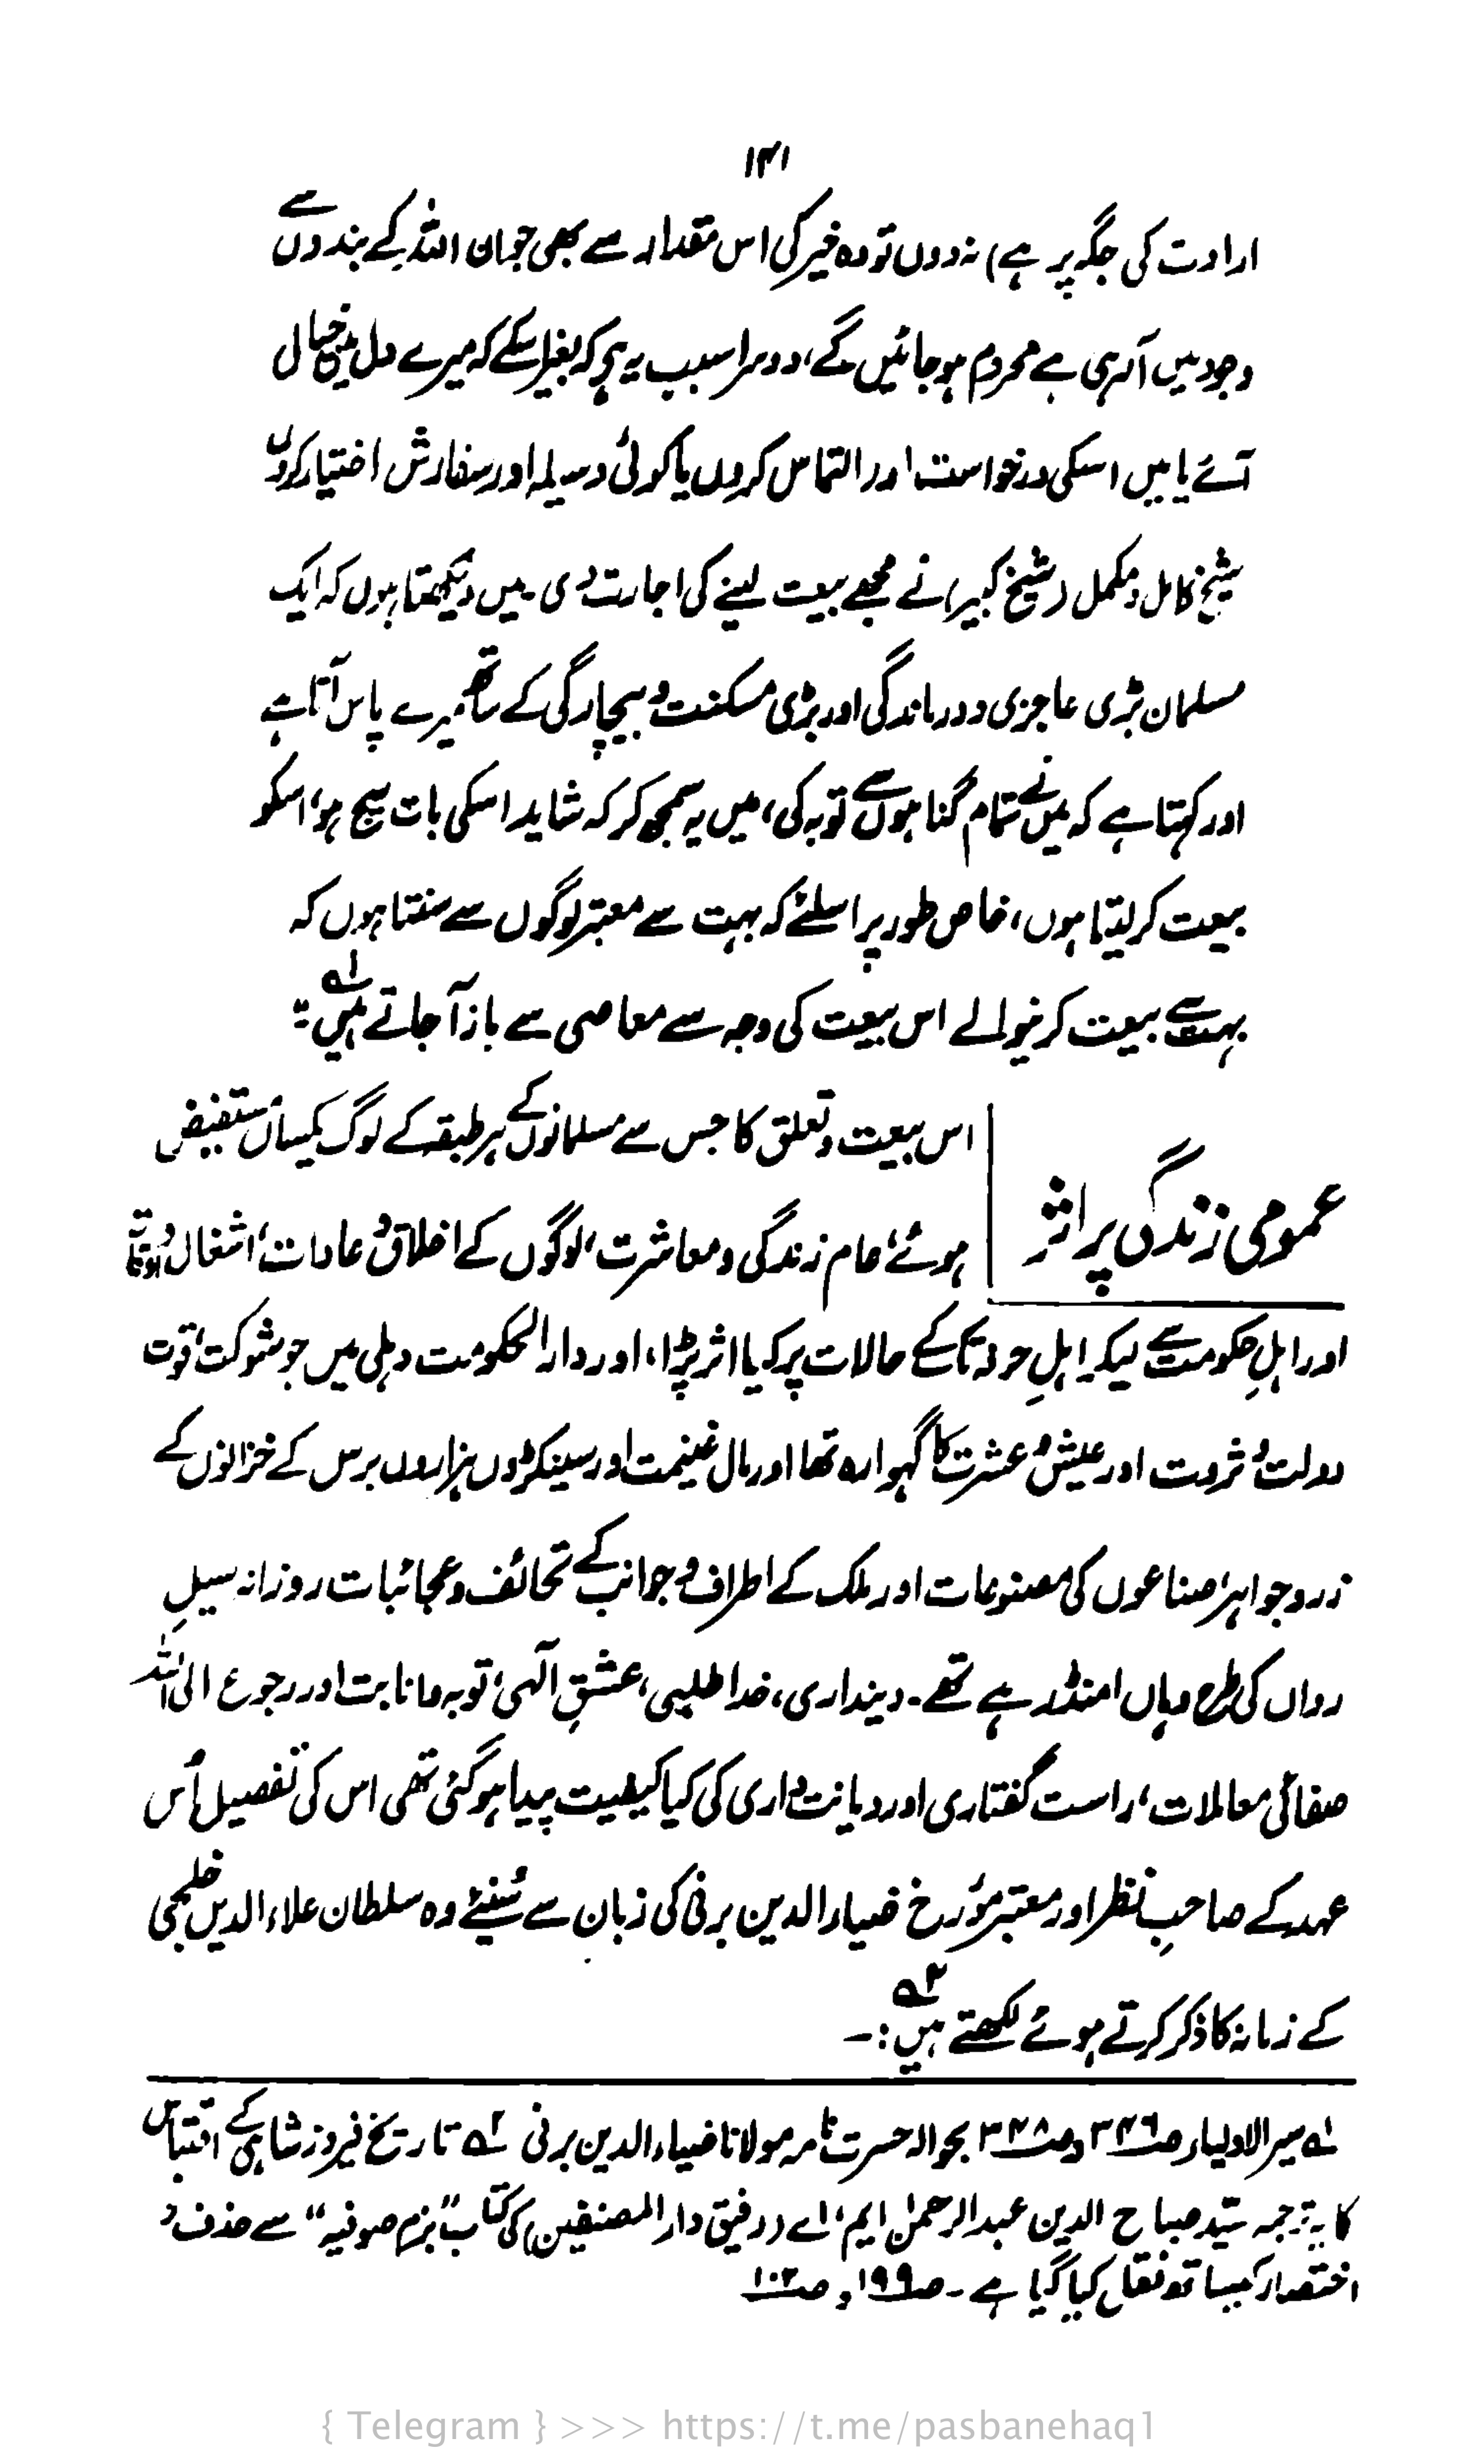 ۱۴۱
ارادت کی جگہ پر ہے) نہ دوں تو وہ خیر کی اس مقدار سے بھی جو ان اللہ کے بندوں سے
وجود میں آ رہی ہے محروم ہو جائیں گے، دوسرا سبب یہ ہے کہ بغیر اسکے کہ میرے دل میں خیال
آئے یا میں اسکی درخواست اور التماس کروں یا کوئی وسیلہ اور سفارش اختیار کروں
شیخ کامل و مکمل (شیخ کبیر) نے مجھے بیعت لینے کی اجازت دی۔ میں دیکھتا ہوں کہ ایک
مسلمان بڑی عاجزی و درماندگی اور بڑی مسکنت و بیچارگی کے ساتھ میرے پاس آتا ہے
اور کہتا ہے کہ میں نے تمام گناہوں سے توبہ کی، میں یہ سمجھ کر کہ شاید اسکی بات سچ ہو، اسکو
بیعت کر لیتا ہوں، خاص طور پر اسلئے کہ بہت سے معتبر لوگوں سے سنتا ہوں کہ
بہت سے بیعت کرنیوالے اس بیعت کی وجہ سے معاصی سے باز آ جاتے ہیں؂۱"
عمومی زندگی پر اثر
اس بیعت و تعلق کا جس سے مسلمانوں کے ہر طبقہ کے لوگ یکساں مستفیض
ہوئے، عام زندگی و معاشرت، لوگوں کے اخلاق و عادات، اشغال و اوقات
اور اہلِ حکومت سے لیکر اہلِ حرفہ تک کے حالات پر کیا اثر پڑا، اور دارالحکومت دہلی میں جو شوکت، قوت
دولت و ثروت اور عیش و عشرت کا گہوارہ تھا اور مال غنیمت اور سینکڑوں ہزاروں برس کے خزانوں کے
زر و جواہر، صناعوں کی مصنوعات اور ملک کے اطراف و جوانب کے تحائف و عجائبات روزانہ سیلِ
رواں کی طرح وہاں امنڈ رہے تھے۔ دینداری، خدا طلبی، عشقِ الٰہی، توبہ و انابت اور رجوع الی اللہ
صفائی معاملات، راست گفتاری اور دیانت داری کی کیا کیفیت پیدا ہو گئی تھی اس کی تفصیل اُس
عہد کے صاحبِ نظر اور معتبر مؤرخ ضیاء الدین برنی کی زبان سے سُنیئے وہ سلطان علاء الدین خلجی
کے زمانہ کا ذکر کرتے ہوئے لکھتے ہیں؂۲:۔
؂۱ سیر الاولیاء ص۳۴۶ و ص۳۴۸ بحوالہ حسرت نامہ مولانا ضیاء الدین برنی ؂۲ تاریخ فیروز شاہی کے اقتباس
کا یہ ترجمہ سیّد صباح الدین عبدالرحمٰن ایم، اے (رفیق دار المصنفین) کی کتاب "بزم صوفیہ" سے حذف و
اختصار کیساتھ نقل کیا گیا ہے۔ ص۱۹۹ و ص۱۰۲
{ Telegram } >>> https://t.me/pasbanehaq1